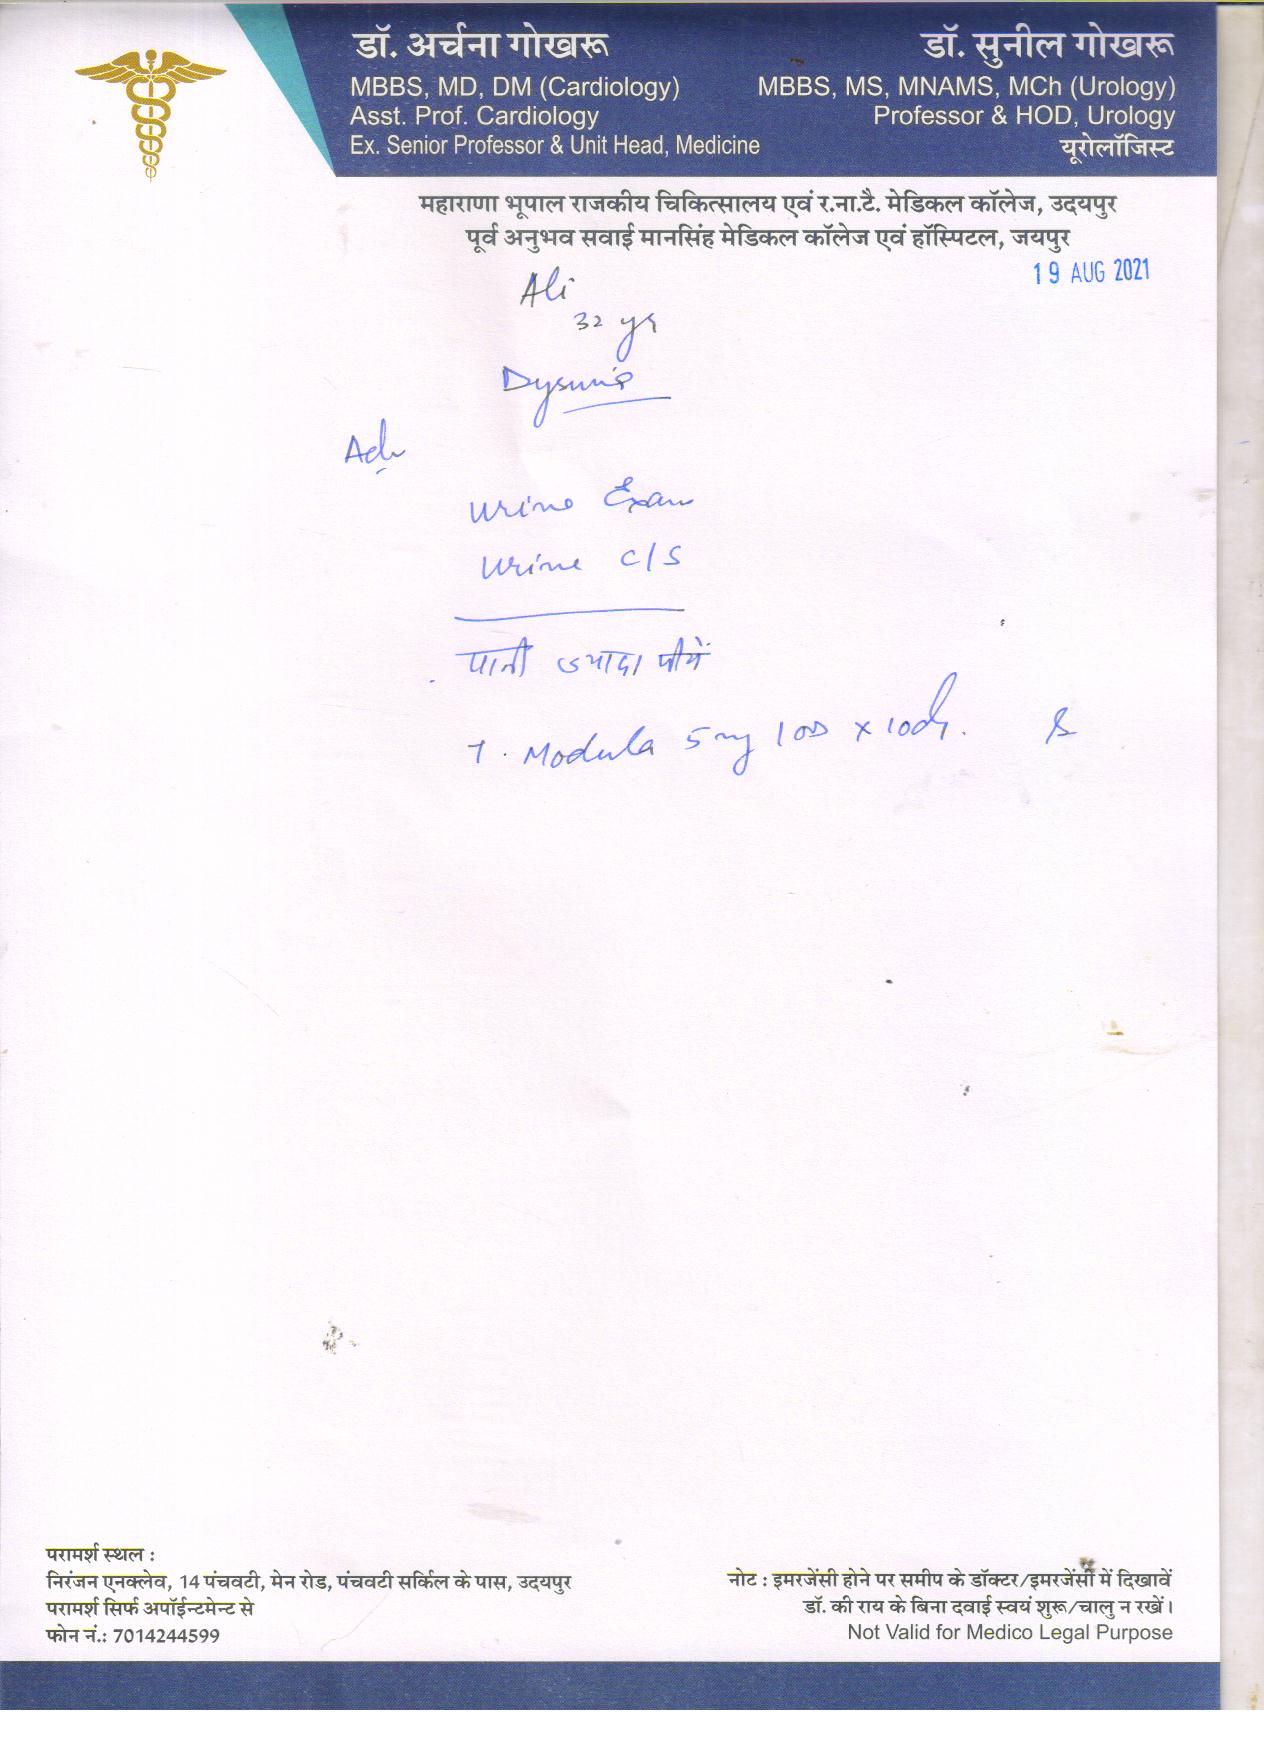 डॉ. अर्चना गोखरू
MBBS, MD, DM (Cardiology)
Asst. Prof. Cardiology
Ex. Senior Professor & Unit Head, Medicine
डॉ. सुनील गोखरू
MBBS, MS, MNAMS, MCh (Urology)
Professor & HOD, Urology
यूरोलॉजिस्ट
महाराणा भूपाल राजकीय चिकित्सालय एवं र.ना.टै. मेडिकल कॉलेज, उदयपुर
पूर्व अनुभव सवाई मानसिंह मेडिकल कॉलेज एवं हॉस्पिटल, जयपुर
19 AUG 2021
Ali
32 yr
Dysuria
Adv
Urine Exam
Urine C/S
पानी ज्यादा पीयें
T. Modula 5mg 1 OD x 10 dy.
परामर्श स्थल :
निरंजन एनक्लेव, 14 पंचवटी, मेन रोड, पंचवटी सर्किल के पास, उदयपुर
परामर्श सिर्फ अपॉईन्टमेन्ट से
फोन नं.: 7014244599
नोट : इमरजेंसी होने पर समीप के डॉक्टर/इमरजेंसी में दिखावें
डॉ. की राय के बिना दवाई स्वयं शुरू/चालु न रखें।
Not Valid for Medico Legal Purpose